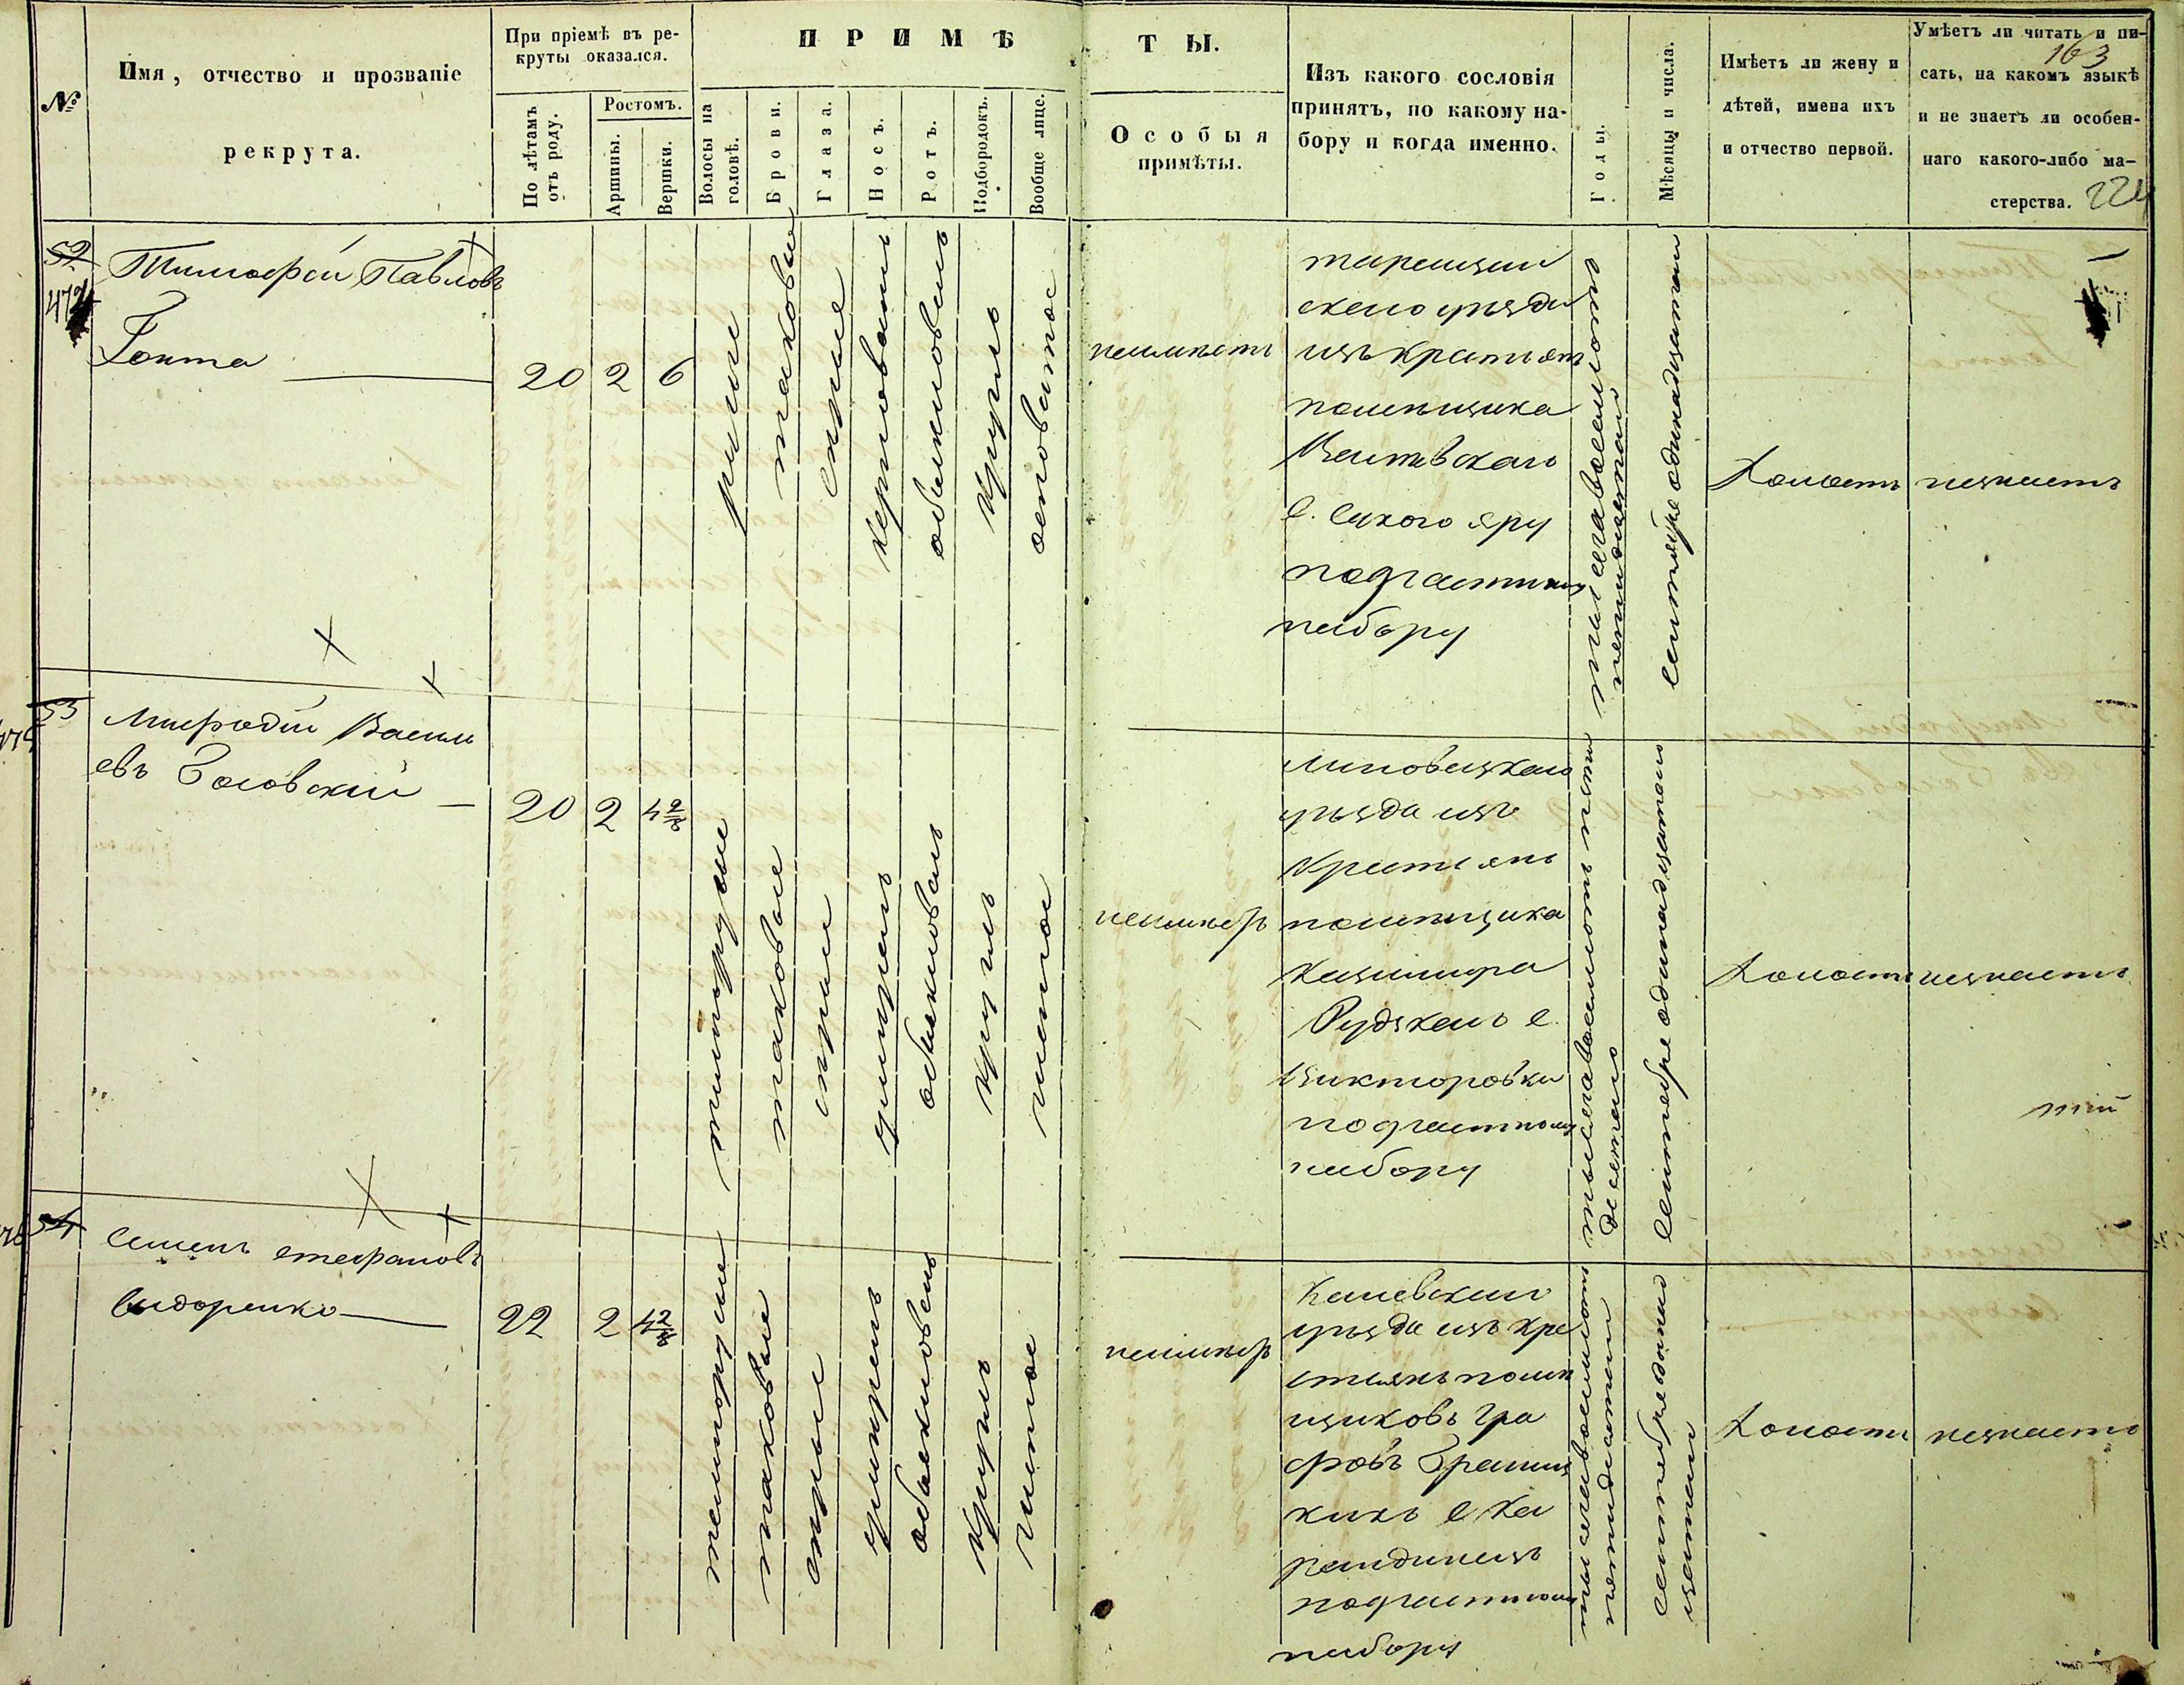 163
224
№
Имя, отчество и прозваніе
рекрута.
При пріемѣ въ ре-
круты оказался.
По лѣтамъ
отъ роду.
Ростомъ.
Аршины.
Вершки.
ПРИМѢ
ТЫ.
Волосы на
головѣ.
Брови.
Глаза.
Носъ.
Ротъ.
Подбородокъ.
Вообще лице.
Особыя
примѣты.
Изъ какого сословія
принятъ, по какому на-
бору и когда именно.
Годы.
Мѣсяцы и числа.
Имѣетъ ли жену и
дѣтей, имена ихъ
и отчество первой.
Умѣетъ ли читать и пи-
сать, на какомъ языкѣ
и не знаетъ ли особен-
наго какого-либо ма-
стерства.
52
Тимофей Павловъ
Гонта
20
2
6
русые
таковые
серые
керповатъ
обыкновенъ
круглъ
осповатое
неимѣетъ
таращан
скаго уѣзда
изъ крестьянъ
помѣщика
с. Сихого яру
почастному
набору
тысяча восемьсотъ
пятидесятаго
сентября одинадцатаго
Холостъ
незнаетъ
53
Мифодій Васил
евъ Госовскій
20
2
4 2/8
темнорусые
таковые
серые
умѣренъ
обыкновенъ
круглъ
чистое
неимѣетъ
Липовецкаго
уѣзда изъ
крестьянъ
помѣщика
Казимира
Рудзкаго с.
Викторовки
почастному
набору
тысяча восемьсотъ пяти
десятаго
сентября одинадцатаго
Холостъ
незнаетъ
54
Семенъ Стефановъ
Сидоренко
22
2
4 2/8
темнорусые
таковые
серые
умѣренъ
обыкновенъ
круглъ
чистое
неимѣетъ
Каневскаго
уѣзда изъ кре
стьянъ помѣ
щиковъ гра
фовъ Браниц
кихъ с Ка
рандинецъ
почастному
набору
тысяча восемьсотъ
пятидесятаго
сентября одинад
цатаго
Холостъ
незнаетъ